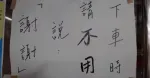 下車時
請不用
說
「謝謝」